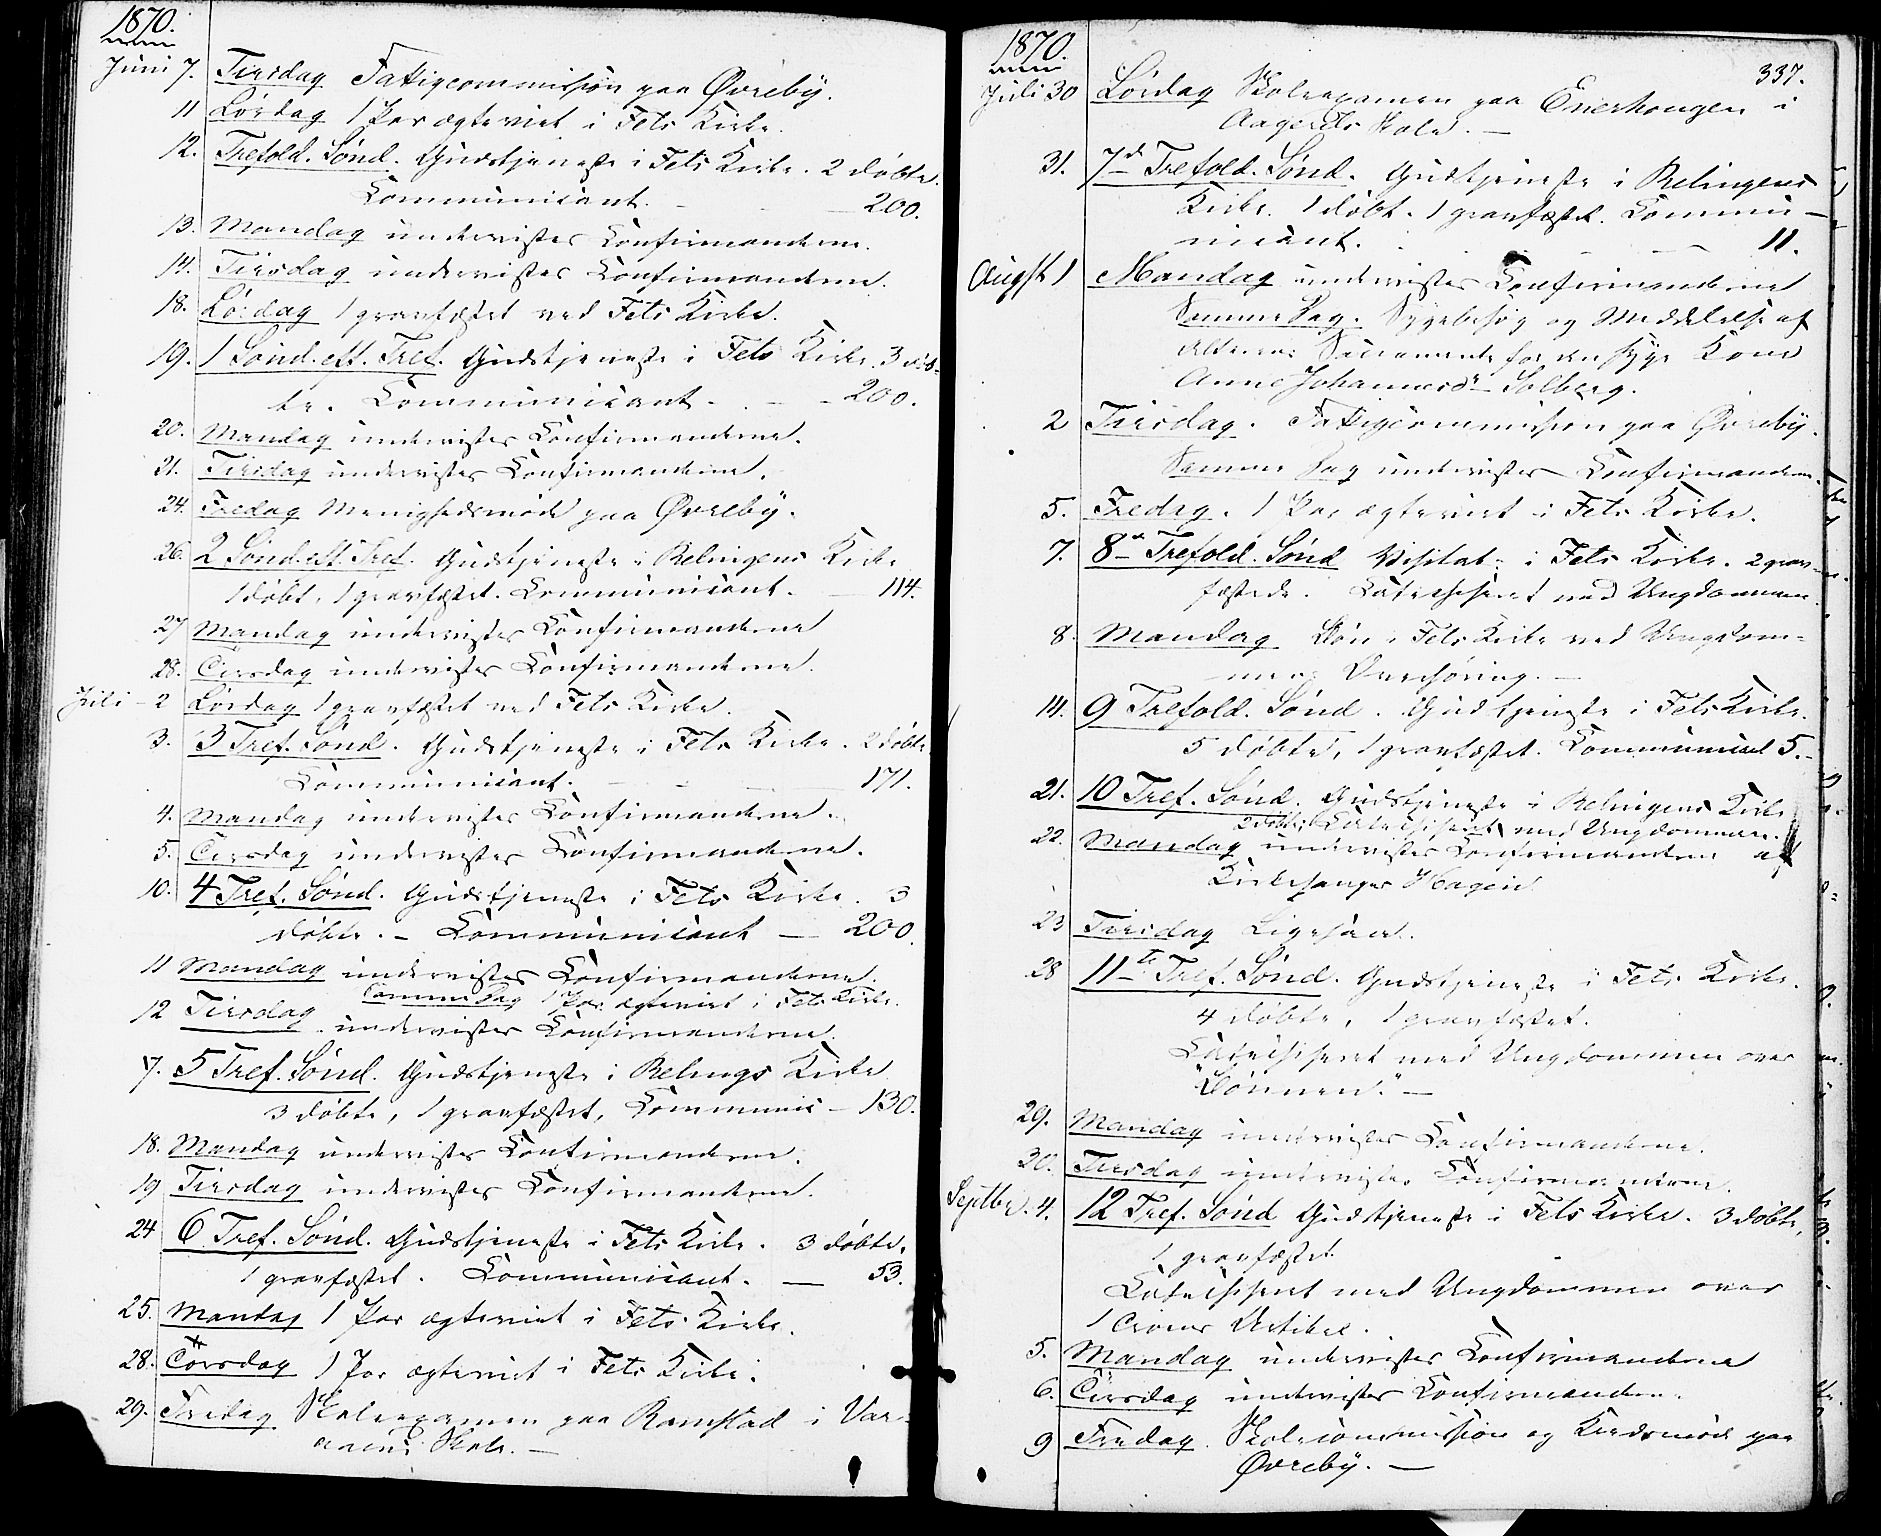 1870.
Juni 7. Tirsdag Fattigcommission paa Øvreby.
11 Lørdag 1 Par ægteviet i Fets Kirke.
12. Trefold. Sønd. Gudstjeneste i Fets Kirke. 2 døbte.
Communicant. - - 200.
13. Mandag undervistes Confirmanderne.
14. Tirsdag undervistes Confirmanderne.
18. Lørdag 1 gravfæstet ved Fets Kirke.
19. 1 Sønd. eft. Tref. Gudstjeneste i Fets Kirke. 3 døb-
te. Communicant. - - 200.
20. Mandag undervistes Confirmanderne.
21. Tirsdag undervistes Confirmanderne.
24. Fredag Menighedsmøde paa Øvreby.
26. 2 Sønd. eft. Tref. Gudstjeneste i Relingens Kirke
1 døbt, 1 gravfæstet. Communicant. - 114.
27 Mandag undervistes Confirmanderne
28. Tirsdag undervistes Confirmanderne.
Juli - 2 Lørdag 1 gravfæstet ved Fets Kirke.
3. 3 Tref. Sønd. Gudstjeneste i Fets Kirke. 2 døbte
Communicant. - - 171.
4. Mandag undervistes Confirmanderne.
5. Tirsdag undervistes Confirmanderne.
10. 4 Tref. Sønd. Gudstjeneste i Fets Kirke. 3
døbte. - Communicant - 200.
11 Mandag undervistes Confirmanderne.
Samme Dag 1 Par ægteviet i Fets Kirke.
12 Tirsdag undervistes Confirmanderne.
17. 5 Tref. Sønd. Gudstjeneste i Relings Kirke
3 døbte, 1 gravfæstet, Communic - 130.
18. Mandag undervistes Confirmanderne.
19 Tirsdag undervistes Confirmanderne.
24 6 Tref. Sønd. Gudstjeneste i Fets Kirke. 3 døbte.
1 gravfæstet. Communicant. - 53.
25. Mandag 1 Par ægteviet i Fets Kirke.
28. Torsdag 1 Par ægteviet i Fets Kirke.
29. Fredag Skoleexamen paa Ramstad i Var-
Skole. -
1870. 337.
Juli 30 Lørdag Skoleexamen paa Enerhougen i
Skole. -
31. 7d Trefold. Sønd. Gudstjeneste i Relingens
Kirke. 1 døbt. 1 gravfæstet. Commu-
nicant. - - 11.
Augst 1 Mandag undervistes Confirmanderne
Samme Dag. Sygebesøg og Meddelelse af
Alterens Sacramente for den syge Kone
Anne Johannesdr Solberg.
2 Tirsdag. Fattigcommission paa Øvreby.
Samme Dag undervistes Confirmanderne.
5. Fredag. 1 Par ægteviet i Fets Kirke.
7. 8 Trefold. Sønd Visitats i Fets Kirke. 2 grav-
fæstede. Catechiseret med Ungdommen.
8. Mandag Bøn i Fets Kirke ved Ungdom-
mens Overhøring. -
14. 9 Trefold. Sønd. Gudstjeneste i Fets Kirke.
5 døbte, 1 gravfæstet. Communicant 5. -
21. 10 Tref. Sønd. Gudstjeneste i Relingens Kirke
2 døbte. Catechiseret med Ungdommen.
22. Mandag undervistes Confirmanderne af
Kirkesanger Hagen
23 Tirsdag Ligesaa.
28 11te Tref. Sønd. Gudstjeneste i Fets Kirke.
4 døbte, 1 gravfæstet.
Catechiseret med Ungdommen over
"Bønnen". -
29. Mandag undervistes Confirmanderne.
30. Tirsdag undervistes Confirmanderne.
Septbr. 4. 12 Tref. Sønd Gudstjeneste i Fets Kirke. 3 døbte,
1 gravfæstet
Catechiseret med Ungdommen over
1 Troens Artikel.
5. Mandag undervistes Confirmanderne
6. Tirsdag undervistes Confirmanderne.
9 Fredag. Skolecommission og Kredsmøde paa
Øvreby. -